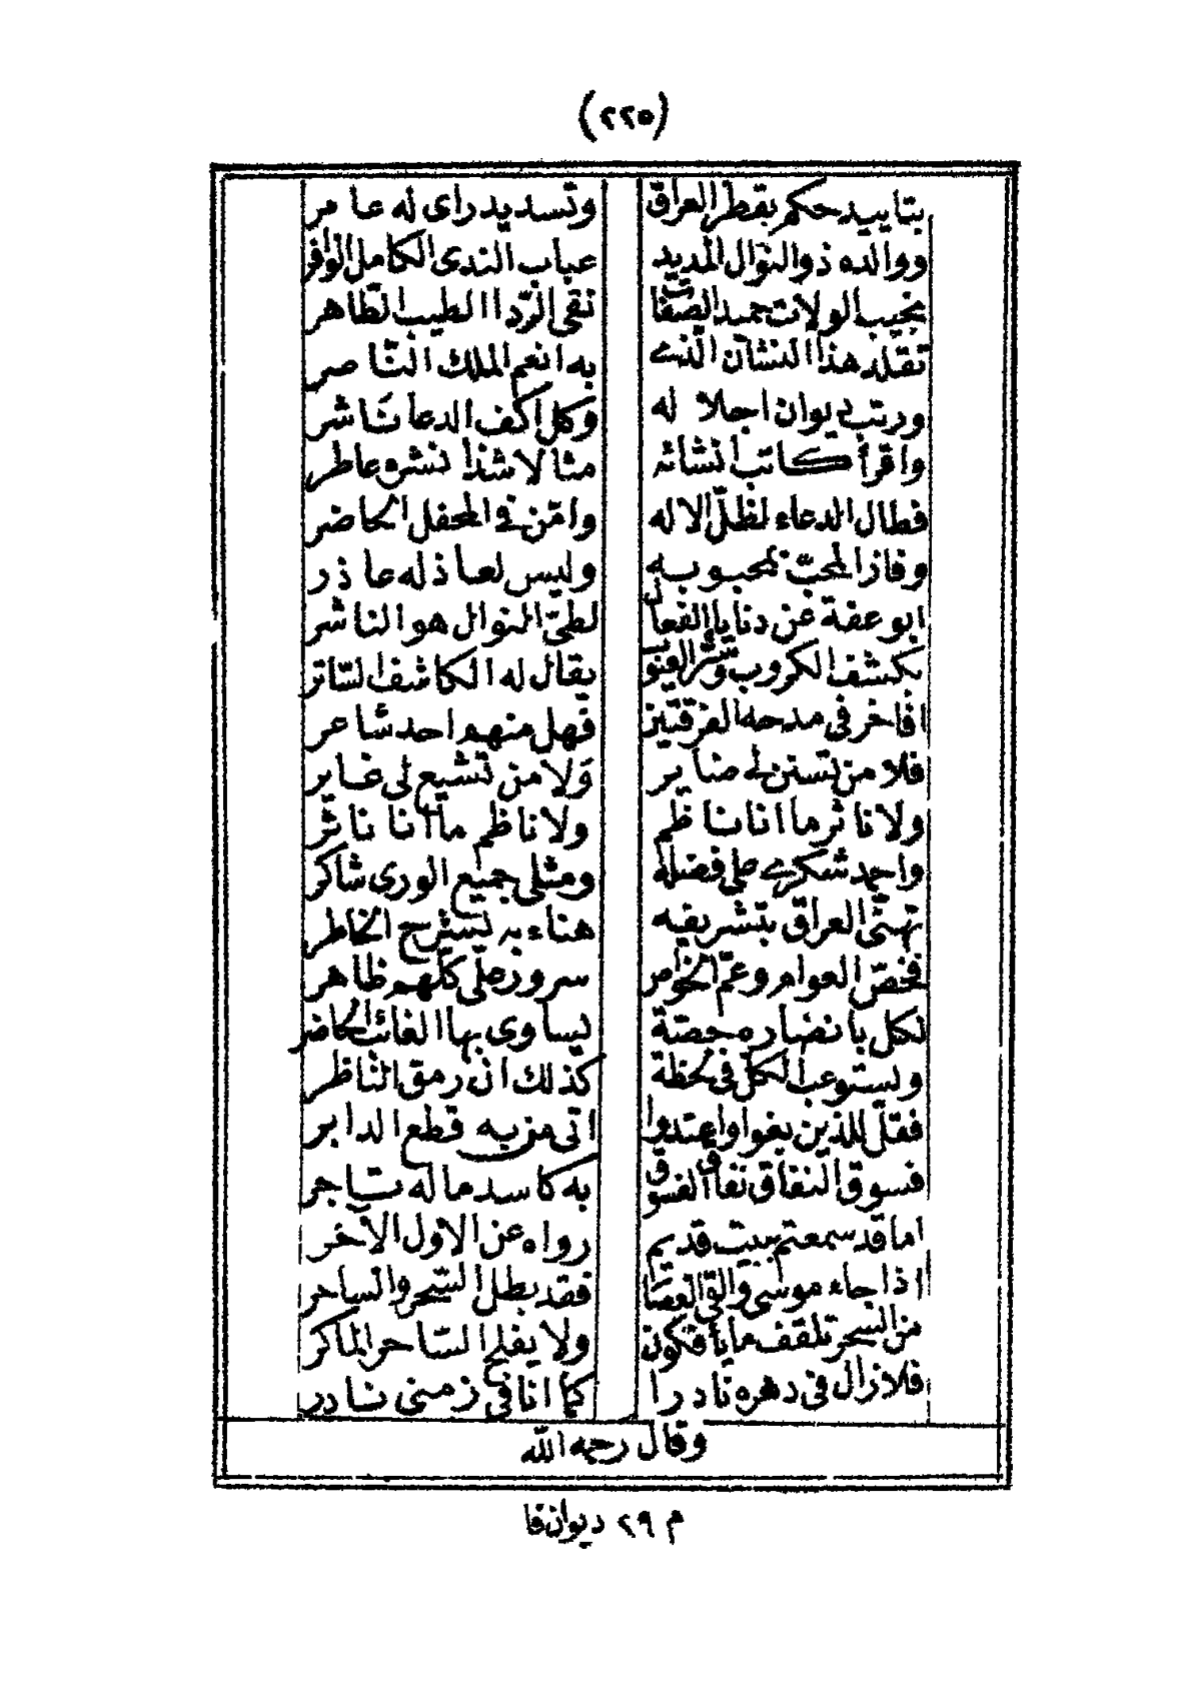 (٢٢٥)
بتاييد حكم بقطر العراق وتسديد راى له عامر
ووالده ذو النوال المديد عباب الندى الكامل الوافر
نجيب الولات حميد الصفات نقى الرّدا الطيب الطّاهر
تقلد هذا النشان الّذى به انعم الملك النّاصر
ورتب ديوان اجلالا له وكل اكف الدعا نَاشر
واقرأ كاتب انشائه مثالا شذا نشره عاطر
فطال الدعاء لظلّ الاله وامّن فى المحفل الحاضر
وفاز المحبّ بمحبوبه وليس لعاذله عاذر
ابو عفة عن دنايا الفعال لطىّ النوال هو الناشر
بكشف الكروب وستر العيوب يقال له الكاشف السّاتر
افاخر فى مدحه الفرقتين فهل منهم احد شاعر
فلا من تسنن لى ضاير وَلا من تشيع لى غاير
ولا ناثر ما انا ناظم ولا ناظم ما انا ناثر
واحمد شكرى على فضله ومثلى جميع الورى شاكر
تهنّى العراق بتشريفيه هناء به ليشرح الخاطر
فخصّ العوام وعمّ الخواص سرور على كلّهم ظاهر
لكل بانضاره حصّة يساوى بها الغائب الحاضر
ويستوعب الكلّ فى لحظة كذلك ان رمق النّاظر
فقل للذين بغوا واعتدوا اتى من به قطع الدابر
فسوق النفاق نفاق الفسوق به كاسد ماله تاجر
اما قد سمعتم ببيت قديم رواه عن الاول الآخر
اذا جاء موسى والقى العصا فقد بطل السّحر والساحر
من السحر تلقف ما يأفكون ولا يفلح السّاحر الماكر
فلا زال فى دهره نادرا كما انا فى زمنى نادر
وقال رحمه الله
م ٢٩ ديوان فا